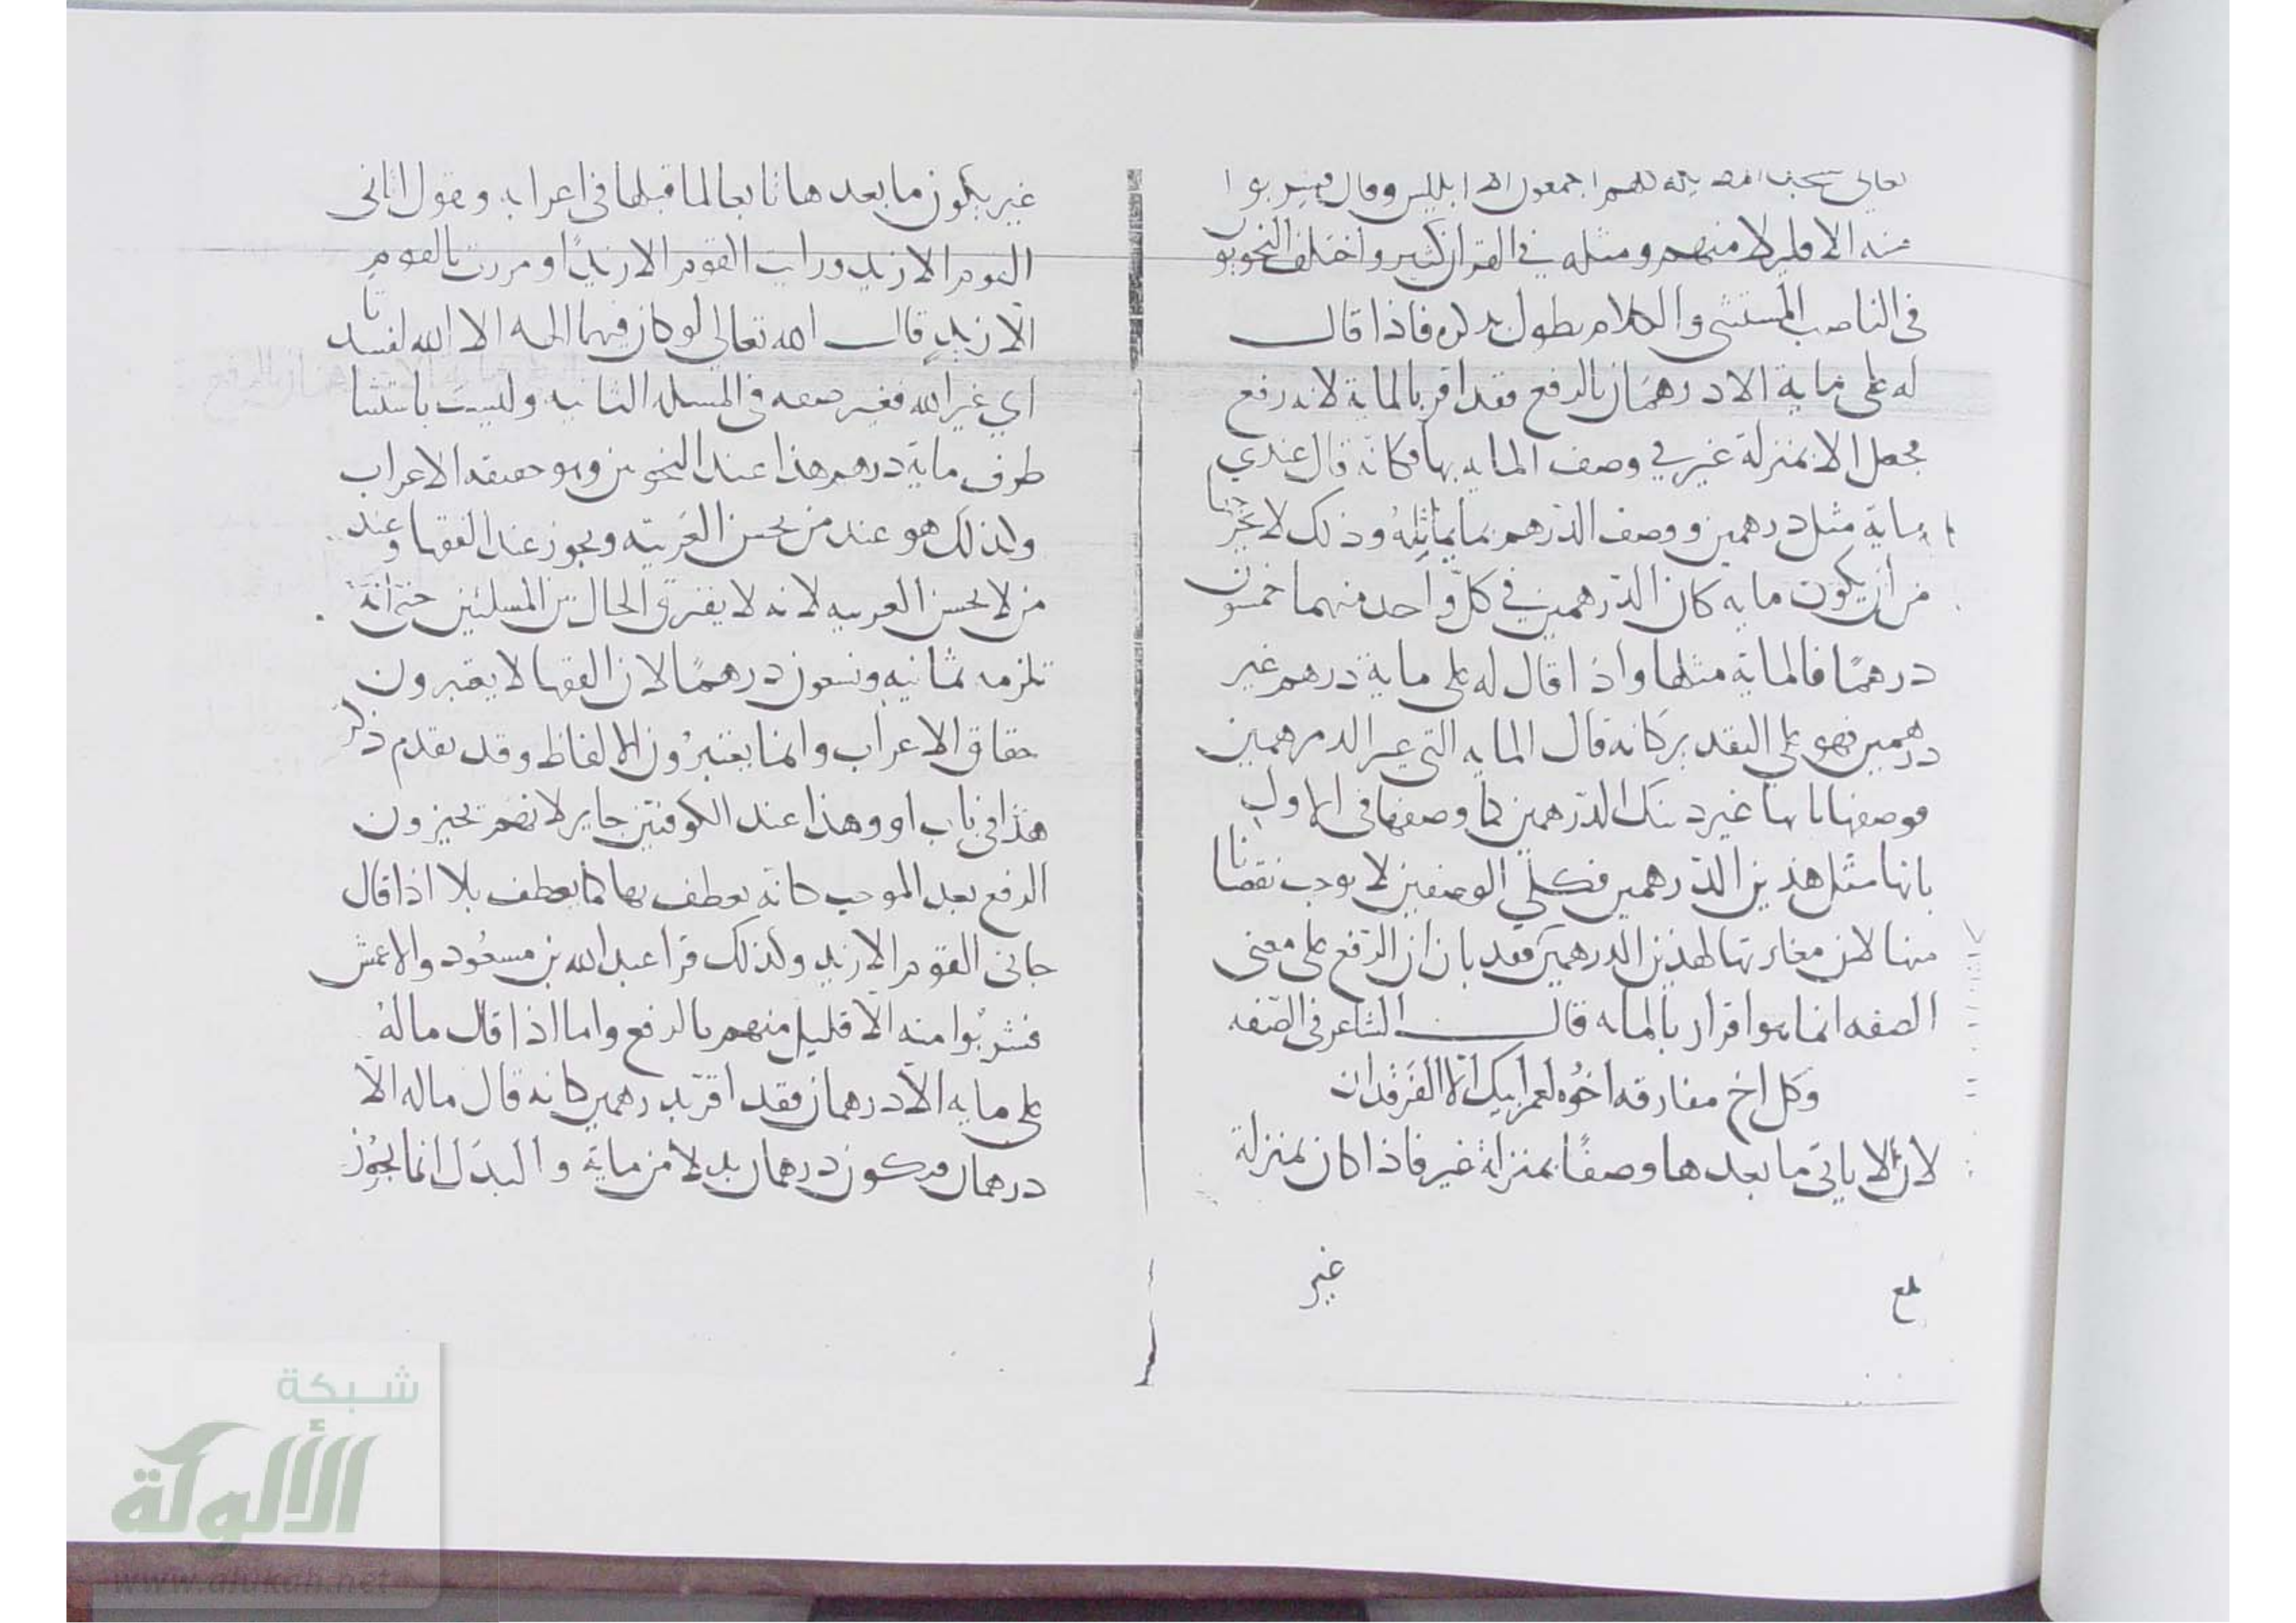 تعالى فسجد الملايكة كلهم اجمعون الا ابليس وقال فشربوا
منه الا قليلا منهم ومثله في القران كثير واختلف النحويون
في الناصب المستثنى والكلام يطول بذكره فاذا قال
له على ماية الا درهمان بالرفع فقد اقر بالماية لانه رفع
فجعل الا بمنزلة غير في وصف الماية بها فكانه قال عندي
ماية مثل درهمين ووصف الدرهم بما يماثله وذلك لا يخرجها
من ان يكون ماية كان الدرهمين في كل واحد منهما خمسون
درهمًا فالماية مثلها واذا قال له على ماية درهم غير
درهمين فهو على التقدير كانه قال الماية التي غير الدرهمين
فوصفها بانها غير ذينك الدرهمين كما وصفها في الاول
بانها مثل هذين الدرهمين فكلى الوصفين لا يوجب نقصانا
منها لان مغايرتها لهذين الدرهمين فقد بان ان الرفع على معنى
الصفه انما هو اقرار بالمايه قال الشاعر في الصفه
وكل اخ مفارقه اخوه لعمر ابيك الا الفرقدان
لان الا ياتي ما بعدها وصفًا بمنزلة غير فاذا كان بمنزلة
بلغ
غير
غير يكون ما بعدها تابعا لما قبلها في اعرابه وتقول اتاني
القوم الا زيد ورايت القوم الا زيدًا ومررت بالقوم
الا زيدٍ قال الله تعالى لو كان فيهما الهه الا الله لفسدتا
اي غير الله فغير صفه في المسله الثانيه وليست باستثنا
طرف ماية درهم هذا عند النحويين وهو حقيقه الاعراب
ولذلك هو عند من يحسن العربيه ويجوز عند الفقها وعند
من لا يحسن العربيه لانه لا يفترق الحال بين المسلتين حتى انه
تلزمه ثمانيه وتسعون درهمًا لان الفقها لا يعتبرون
حقاق الاعراب وانما يعتبرون الالفاظ وقد تقدم ذكر
هذا في باب او وهذا عند الكوفيين جايز لانهم يجيزون
الرفع بعد الموجب كانه يعطف بها كما يعطف بلا اذا قال
جاني القوم الا زيد ولذلك قرا عبد الله بن مسعود والاعمش
فشربوا منه الا قليل منهم بالرفع واما اذا قال ماله
على مايه الا درهمان فقد اقر بدرهمين كانه قال ماله الا
درهمان فيكون درهمان بدلا من ماية والبدل انما يجوز
شبكة
الألوكة
www.alukah.net